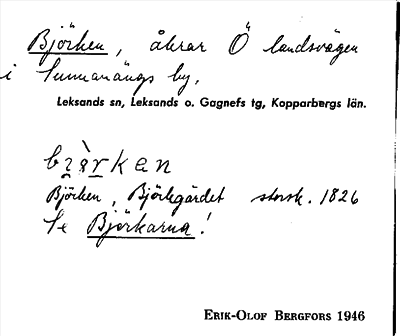 Björken, åkrar Ö landsvägen
i Sunnanängs by.
Leksands sn, Leksands o. Gagnefs tg, Kopparbergs län.
Björken, Björkgärdet storsk. 1826
Se Björkarna!
ERIK-OLOF BERGFORS 1946